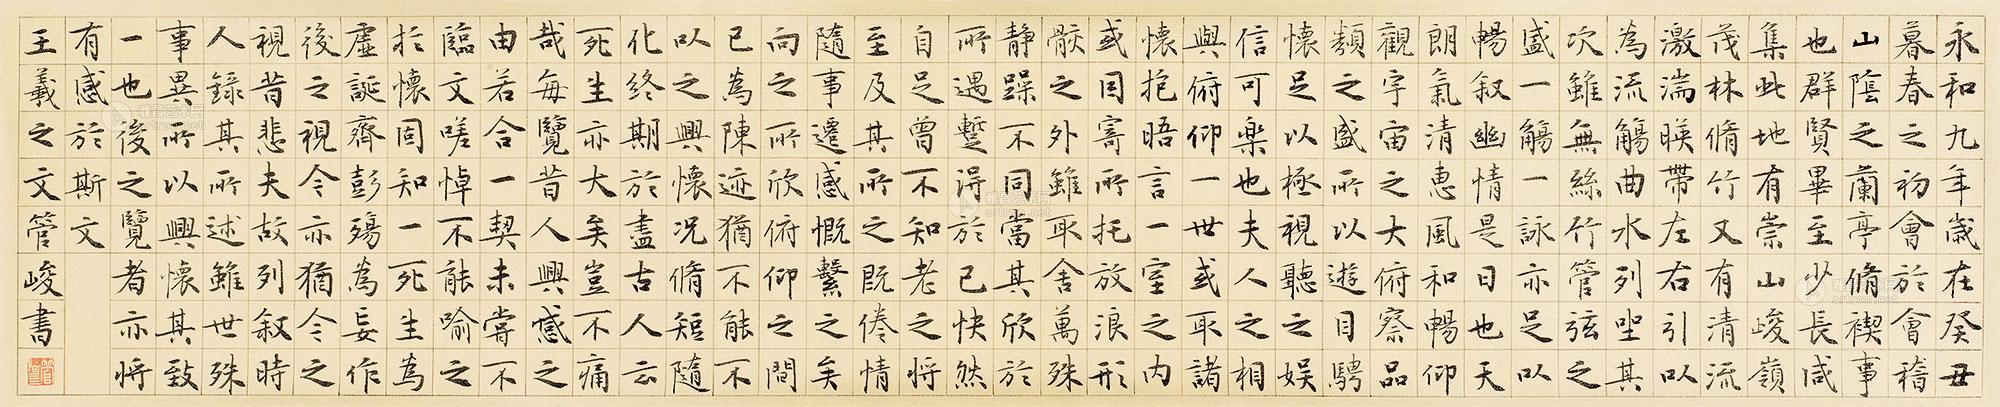 永和九年歲在癸丑
暮春之初會於會稽
山陰之蘭亭脩禊事
也群賢畢至少長咸
集此地有崇山峻嶺
茂林脩竹又有清流
激湍暎帶左右引以
為流觴曲水列坐其
次雖無絲竹管弦之
盛一觴一詠亦足以
暢叙幽情是日也天
朗氣清惠風和暢仰
觀宇宙之大俯察品
類之盛所以遊目騁
懷足以極視聽之娛
信可樂也夫人之相
與俯仰一世或取諸
懷抱晤言一室之內
或因寄所托放浪形
骸之外雖取舍萬殊
静躁不同當其欣於
所遇暫得於己快然
自足曾不知老之將
至及其所之既倦情
隨事遷感慨繫之矣
向之所欣俯仰之間
已為陳迹猶不能不
以之興懷況脩短隨
化終期於盡古人云
死生亦大矣豈不痛
哉每覽昔人興感之
由若合一契未嘗不
臨文嗟悼不能喻之
於懷固知一死生為
虛誕齊彭殤為妄作
後之視今亦猶今之
視昔悲夫故列叙時
人錄其所述雖世殊
事異所以興懷其致
一也後之覽者亦將
有感於斯文
王羲之文管峻書